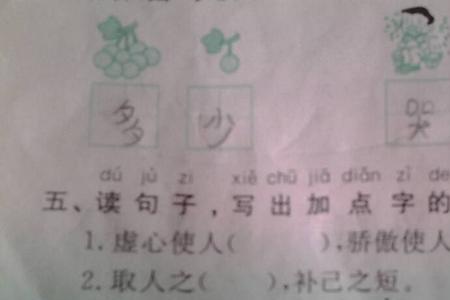 多 少 哭
dú jù zi xiě chū jiā diǎn zì de
五、读句子，写出加点字的
1.虚心使人( ),骄傲使人
2.取人之( ),补己之短。